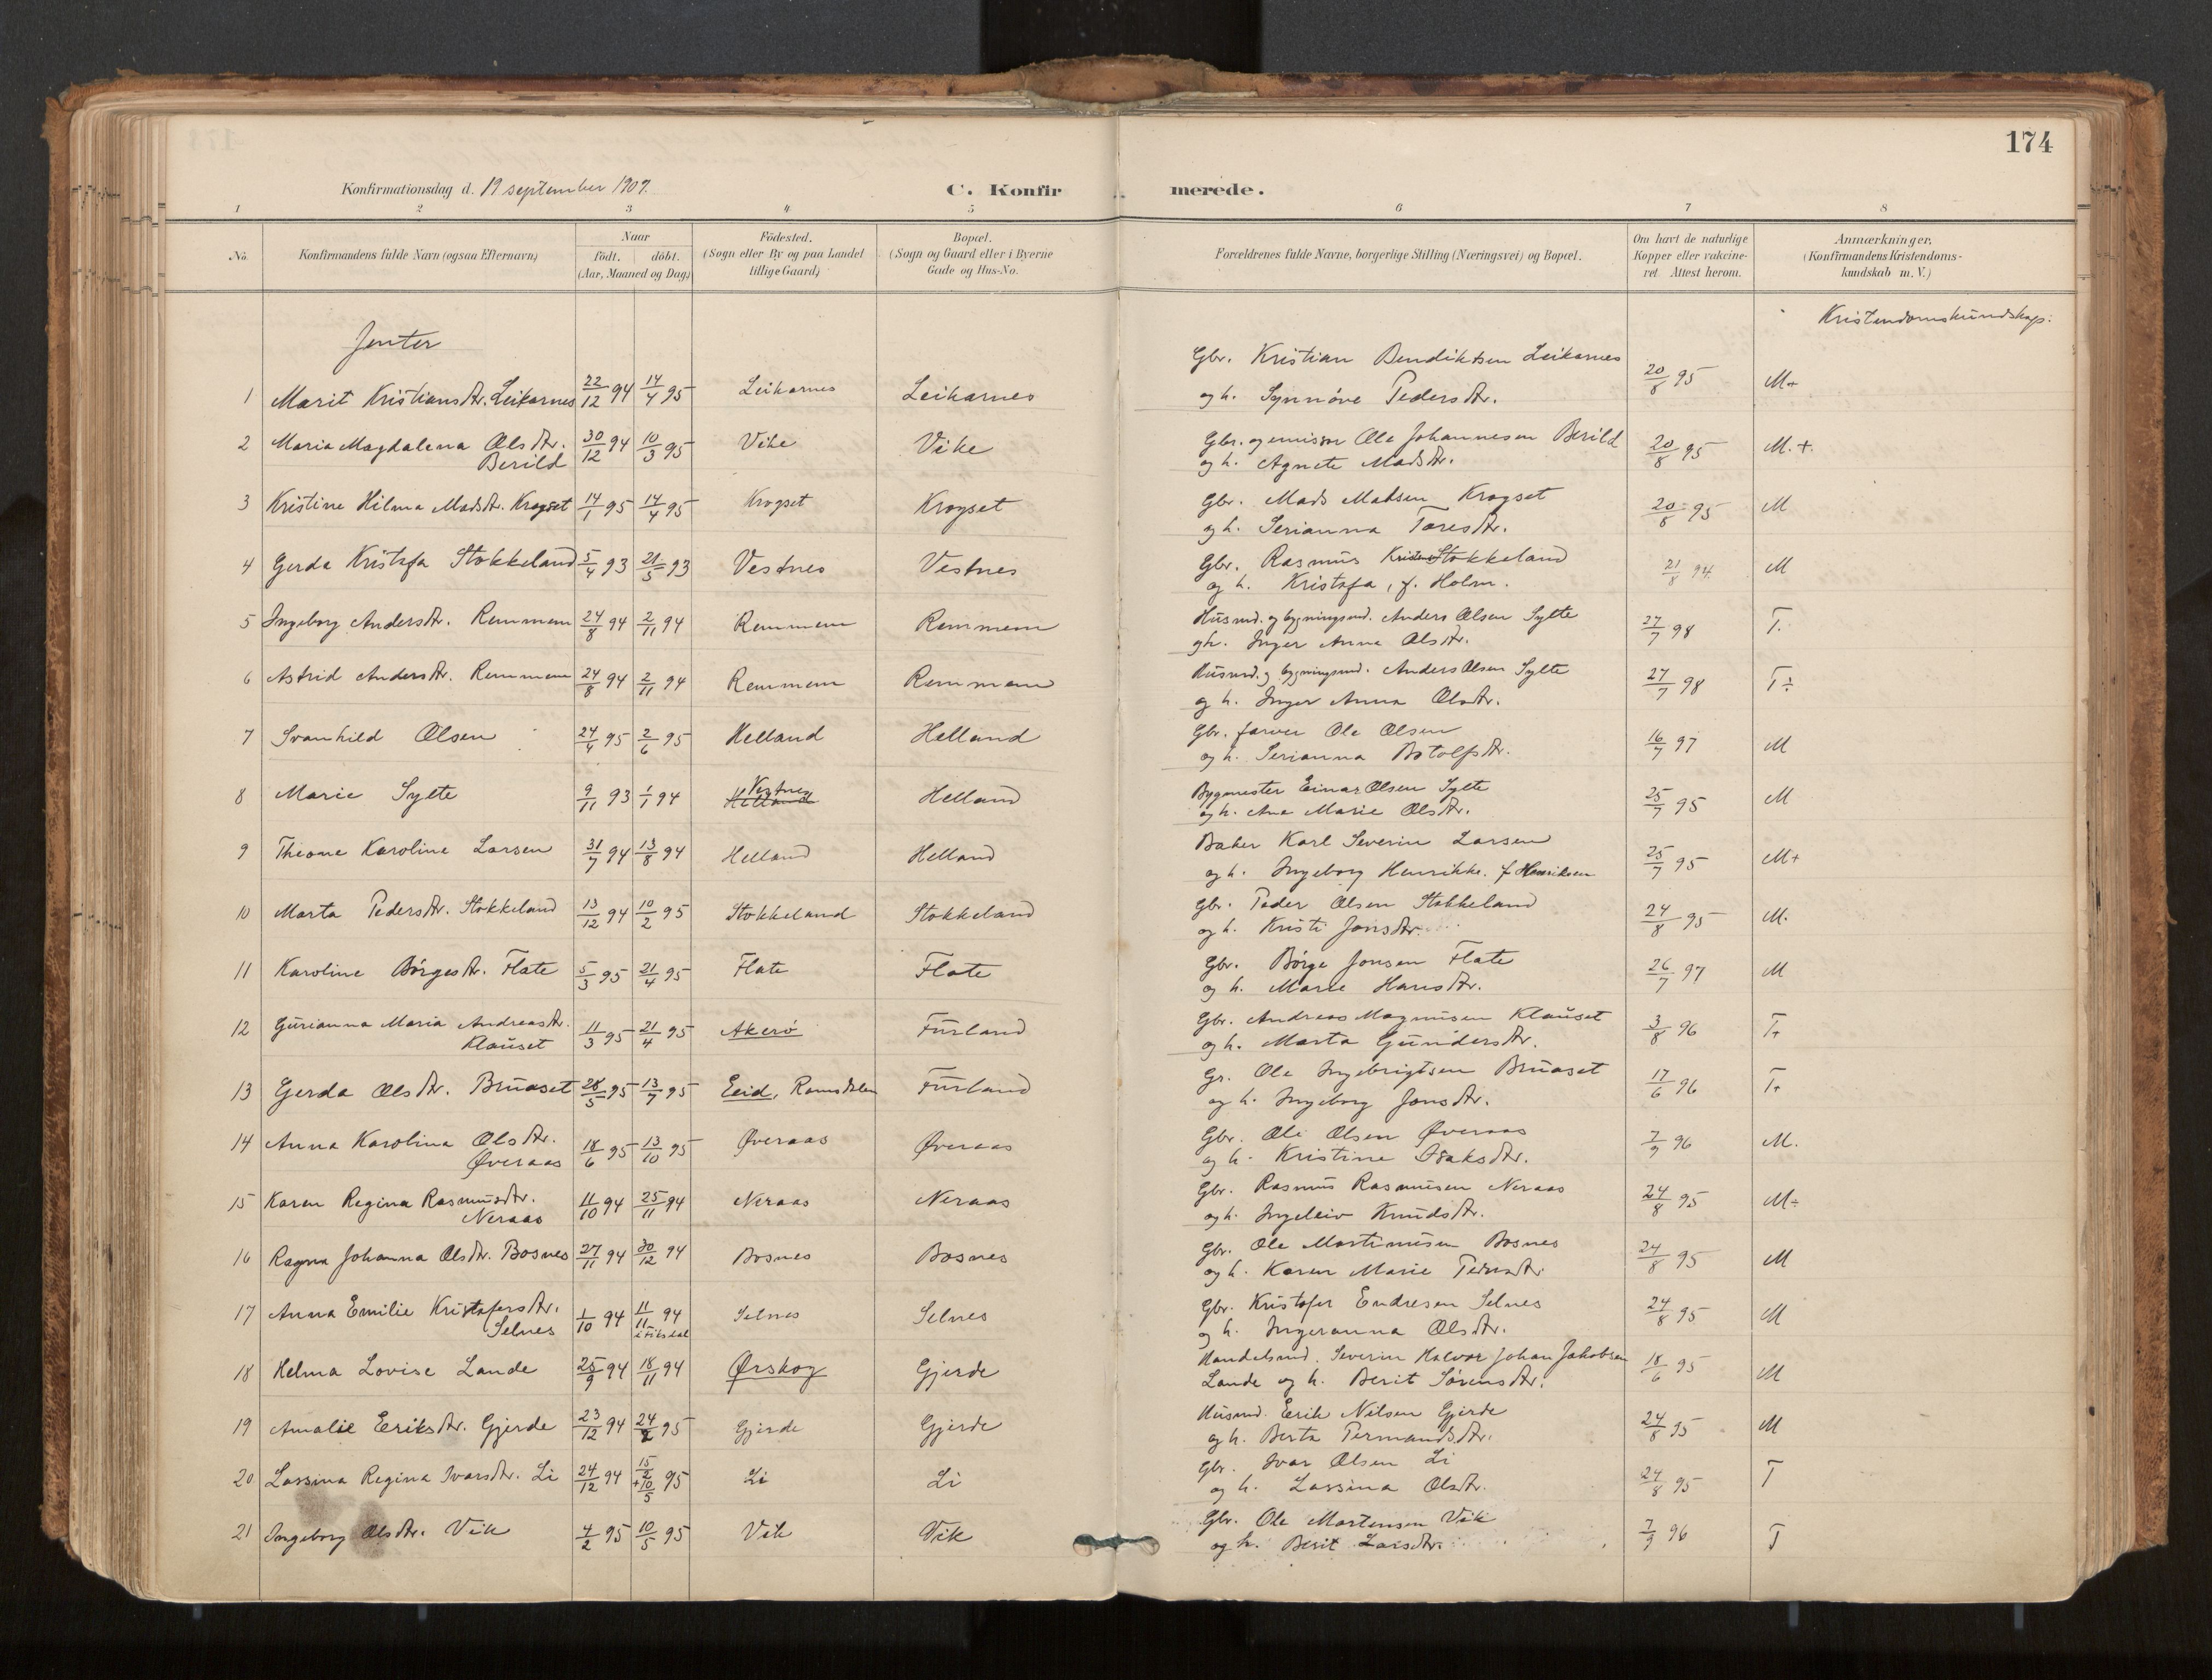 174
Konfirmationsdag d. 19 september 1909.
C. Konfir merede.
1 2 3 4 5 6 7 8
No. Konfirmandens fulde Navn (ogsaa Efternavn) Naar födt. döbt. (Aar, Maaned og Dag) Födested. (Sogn eller By og paa Landet tillige Gaard) Bopæl. (Sogn og Gaard eller i Byerne Gade og Hus-No. Forældrenes fulde Navne, borgerlige Stilling (Næringsvei) og Bopæl. Om havt de naturlige Kopper eller vakcineret Attest herom. Anmærkninger. (Konfirmandens Kristendomskundskab m. V.)
Kristendomskundskap:
Jenter
Gbr. Kristian Bendiktsen Leikarnes
1 Marit Kristiansdtr. Leikarnes 22/12 94 14/4 95 Leikarnes Leikarnes og h. Synnöve Pedersdtr. 20/8 95 M+
2 Maria Magdalena Olsdtr. Berild 30/12 94 10/3 95 Vike Vike Gbr. og emissær Ole Johannesen Berild
og h. Agnete Madsdtr. 20/8 95 M.+
3 Kristine Hilma Madsdtr. Krogset 14/1 95 14/4 95 Krogset Krogset Gbr. Mads Madsen Krogset
og h. Serianna Taresdtr. 20/8 95 M
4 Gerda Kristofa Stokkeland 5/4 93 21/5 93 Vestnes Vestnes Gbr. Rasmus Stokkeland
og h. Kristofa, f. Holm. 21/8 94 M
5 Ingeborg Andersdtr. Remmem 24/8 94 2/11 94 Remmem Remmem Husmd. og bygningsmd. Anders Olsen Sylte
og h. Inger Anna Olsdtr. 27/7 98 T.
6 Astrid Andersdtr. Remmem 24/8 94 2/11 94 Remmem Remmem Husmd. og bygningsmd. Anders Olsen Sylte
og h. Inger Anna Olsdtr. 27/7 98 T÷
7 Svanhild Olsen 24/4 95 2/6 95 Helland Helland Gbr. farver Ole Olsen
og h. Serianna Botolfsdtr. 16/7 97 M
8 Marie Sylte 9/11 93 1/1 94 Vestnes Helland Helland Bygmester Einar Olsen Sylte
og h. Ane Marie Olsdtr. 25/7 95 M
9 Theone Karoline Larsen 31/7 94 13/8 94 Helland Helland Baker Karl Severin Larsen
og h. Ingeborg Henrikke. f Henriksen 25/7 95 M+
10 Marta Pedersdtr. Stokkeland 13/12 94 10/2 95 Stokkeland Stokkeland Gbr. Peder Olsen Stokkeland
og h. Kristi Jonsdtr. 24/8 95 M.
11 Karoline Börgesdtr. Flate 5/3 95 21/4 95 Flate Flate Gbr. Börge Jonsen Flate
og h. Marie Hansdtr. 26/7 97 M
12 Gurianna Maria Andreasdtr. Klauset 11/3 95 21/4 95 Akerö Furland Gbr. Andreas Magnusen Klauset
og h. Marta Gundersdtr. 3/8 96 T+
13 Gerda Olsdtr. Bruaset 28/5 95 13/7 95 Eid, Romsdalen Furland Gr. Ole Ingebrigtsen Bruaset
og h. Ingeborg Jonsdtr. 17/6 96 T+
14 Anna Karolina Olsdtr. Øveraas 18/6 95 13/10 95 Øveraas Øveraas Gbr. Ole Olsen Øveraas
og h. Kristine Isaksdtr. 7/9 96 M.
15 Karen Regina Rasmusdtr. Neraas 11/10 94 25/11 94 Neraas Neraas Gbr. Rasmus Rasmusen Neraas
og h. Ingeleiv Knudsdtr. 24/8 95 M÷
16 Ragna Johanna Olsdtr. Bosnes 27/11 94 30/12 94 Bosnes Bosnes Gbr. Ole Martinusen Bosnes
og h. Karen Marie Pedersdtr. 24/8 95 M
17 Anna Emilie Kristofersdtr. Selnes 1/10 94 11/11 94 Selnes Selnes Gbr. Kristofer Endresen Selnes
og h. Ingeranna Olsdtr. 24/8 95 M
18 Helma Lovise Lande 25/9 94 18/11 94 Ørskog Gjerde Handelsmd. Severin Halvor Johan Jakobsen
Lande og h. Berit Sörensdtr. 18/6 95 M
19 Amalie Eriksdtr. Gjerde 23/12 94 24/2 95 Gjerde Gjerde Husmd. Erik Nilsen Gjerde
og h. Berta Permandsdtr. 24/8 95 M
20 Lassina Regina Ivarsdtr. Li 24/12 94 15/2 + 10/5 95 Li Li Gbr. Ivar Olsen Li
og h. Lassina Olsdtr. 24/8 95 T
21 Ingeborg Olsdtr. Vik 4/2 95 10/5 95 Vik Vik Gbr. Ole Mortensen Vik
og h. Berit Larsdtr. 7/9 96 T